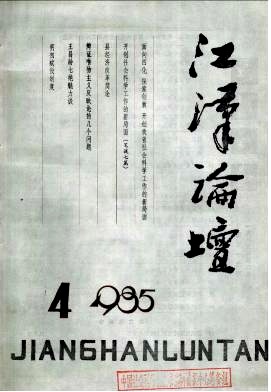 江漢論壇
面向四化 探索创新 开创我省社会科学工作的新局面
开创社会科学工作的新局面（笔谈七篇）
县经济改革简论
辩证唯物主义反映论的几个问题
王昌龄七绝魅力谈
4 1985
JIANGHANLUNTAN